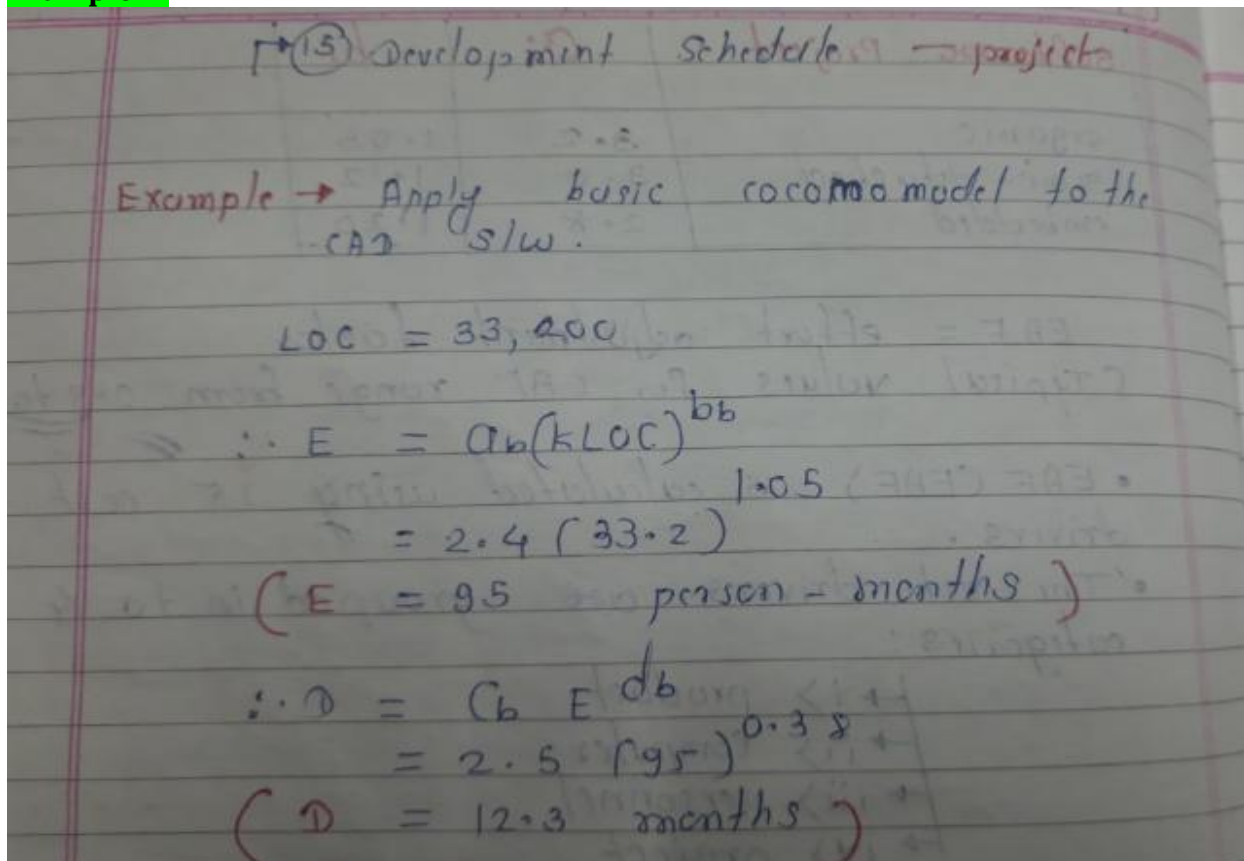 ↱ (15) Development Schedule - project
Example → Apply basic cocomo model to the
CAD s/w.
LOC = 33,200
∴ E = ab(KLOC)^bb
= 2.4 (33.2)^1.05
(E = 95 person - months)
∴ D = Cb E^db
= 2.5 (95)^0.38
(D = 12.3 months)